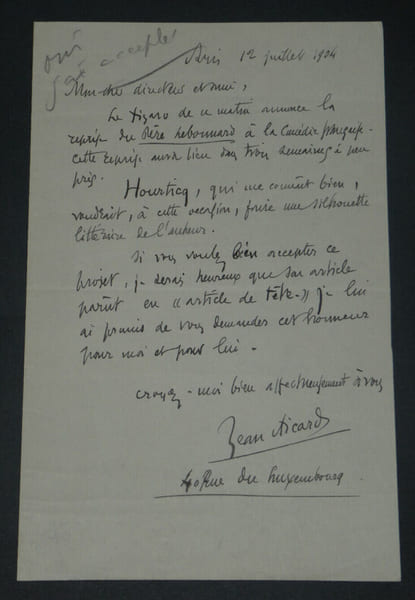 oui
j'ai accepté
Paris 12 juillet 1904
Mon cher directeur et ami,
Le Figaro de ce matin annonce la
reprise du Père Lebonnard à la Comédie française.
cette reprise aura lieu dans trois semaines à peu
près.
Hourticq, qui me connaît bien,
voudrait, à cette occasion, faire une silhouette
littéraire de l'auteur.
Si vous voulez bien accepter ce
projet, je serais heureux que son article
parût en « article de tête. » je lui
ai promis de vous demander cet honneur
pour moi et pour lui.
croyez-moi bien affectueusement à vous
Jean Aicard
40 Rue du Luxembourg.